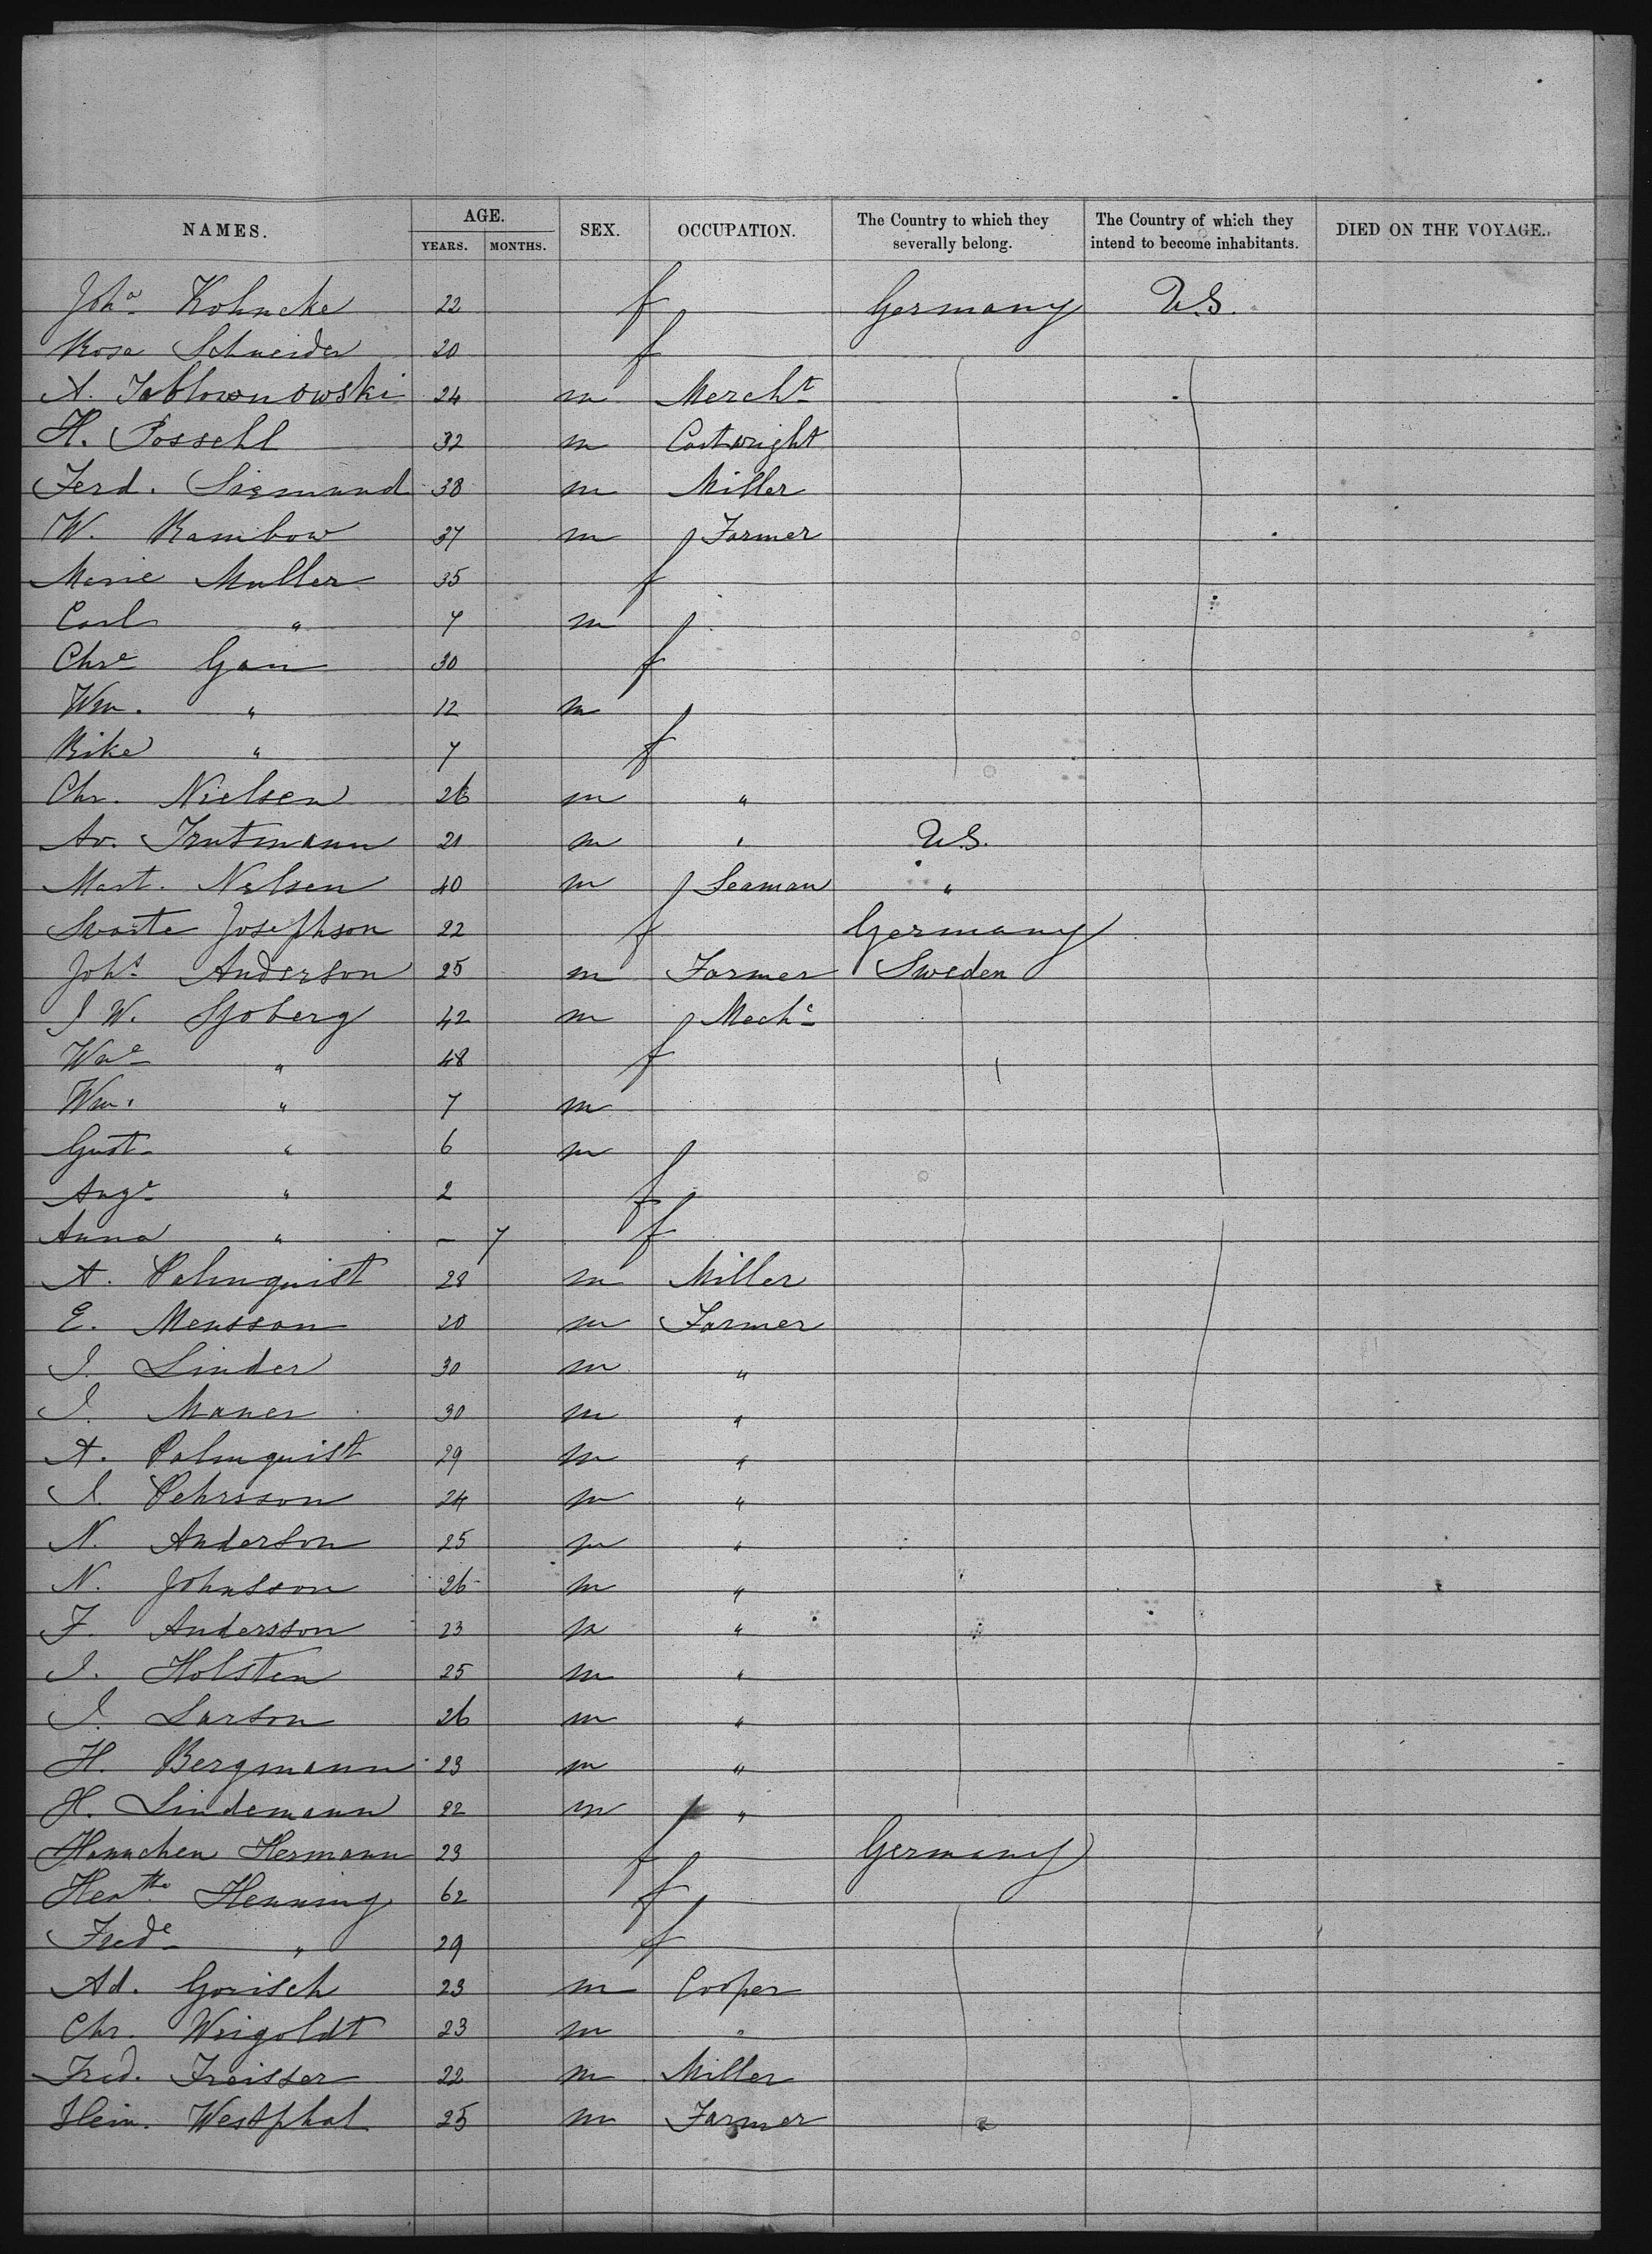 NAMES. AGE. SEX. OCCUPATION. The Country to which they severally belong. The Country of which they intend to become inhabitants. DIED ON THE VOYAGE.
YEARS. MONTHS.
Joh<sup>a</sup> Kohncke 22 f Germany U.S.
Rosa Schneider 20 f
A. Jablownowski 24 m Merch<sup>t</sup>
H. Possehl 32 m Cartwright
Ferd. Siemund 38 m Miller
W. Rambow 37 m Farmer
Marie Muller 35 f
Carl " 7 m
Chr<sup>e</sup> Gan 30 f
Wm. " 12 m
Rike " 7 f
Chr. Nielsen 26 m "
Av. Trutmann 21 m " U.S.
Mart. Nelsen 40 m Seaman "
Josephson 22 f Germany
Joh<sup>s</sup> Anderson 25 m Farmer Sweden
J W. Sjoberg 42 m Mech<sup>c</sup>
" 48 f
Wm. " 7 m
Gust. " 6 m
Aug<sup>e</sup> " 2 f
Anna " – 7 f
A. Palmquist 28 m Miller
E. Mensson 20 m Farmer
J. Linder 30 m "
J. Maner 30 m "
A. Palmquist 29 m "
J. Pehrsson 24 m "
N. Anderson 25 m "
N. Johnsson 26 m "
F. Andersson 23 m "
J. Holsten 25 m "
J. Larson 26 m "
H. Bergmann 23 m "
H. Lindemann 22 m "
Hannchen Hermann 23 f Germany
Henning 62 f
Fred<sup>e</sup> " 29 f
Ad. Gorisch 23 m Cooper
Chr. Weigoldt 23 m "
Fred. Freisser 22 m Miller
Hein. Westphal 25 m Farmer